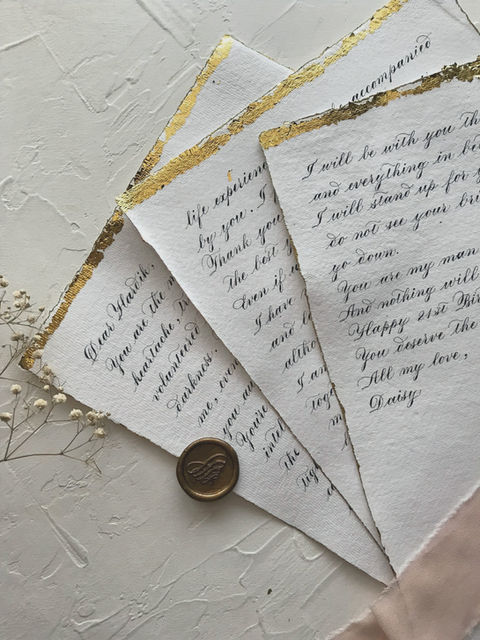 Dear Hardik,
You are the
heartache,
volunteered
darkness.
me, even
you
You're
the
life experien
by you. I
Thank you
the best
Even if
I have
and
altho
I am
toge
accompanied
I will be with you th
and everything in be
I will stand up for y
do not see your bri
go down.
You are my man
And nothing will
Happy 21st Bir
You deserve the
All my love,
Daisy